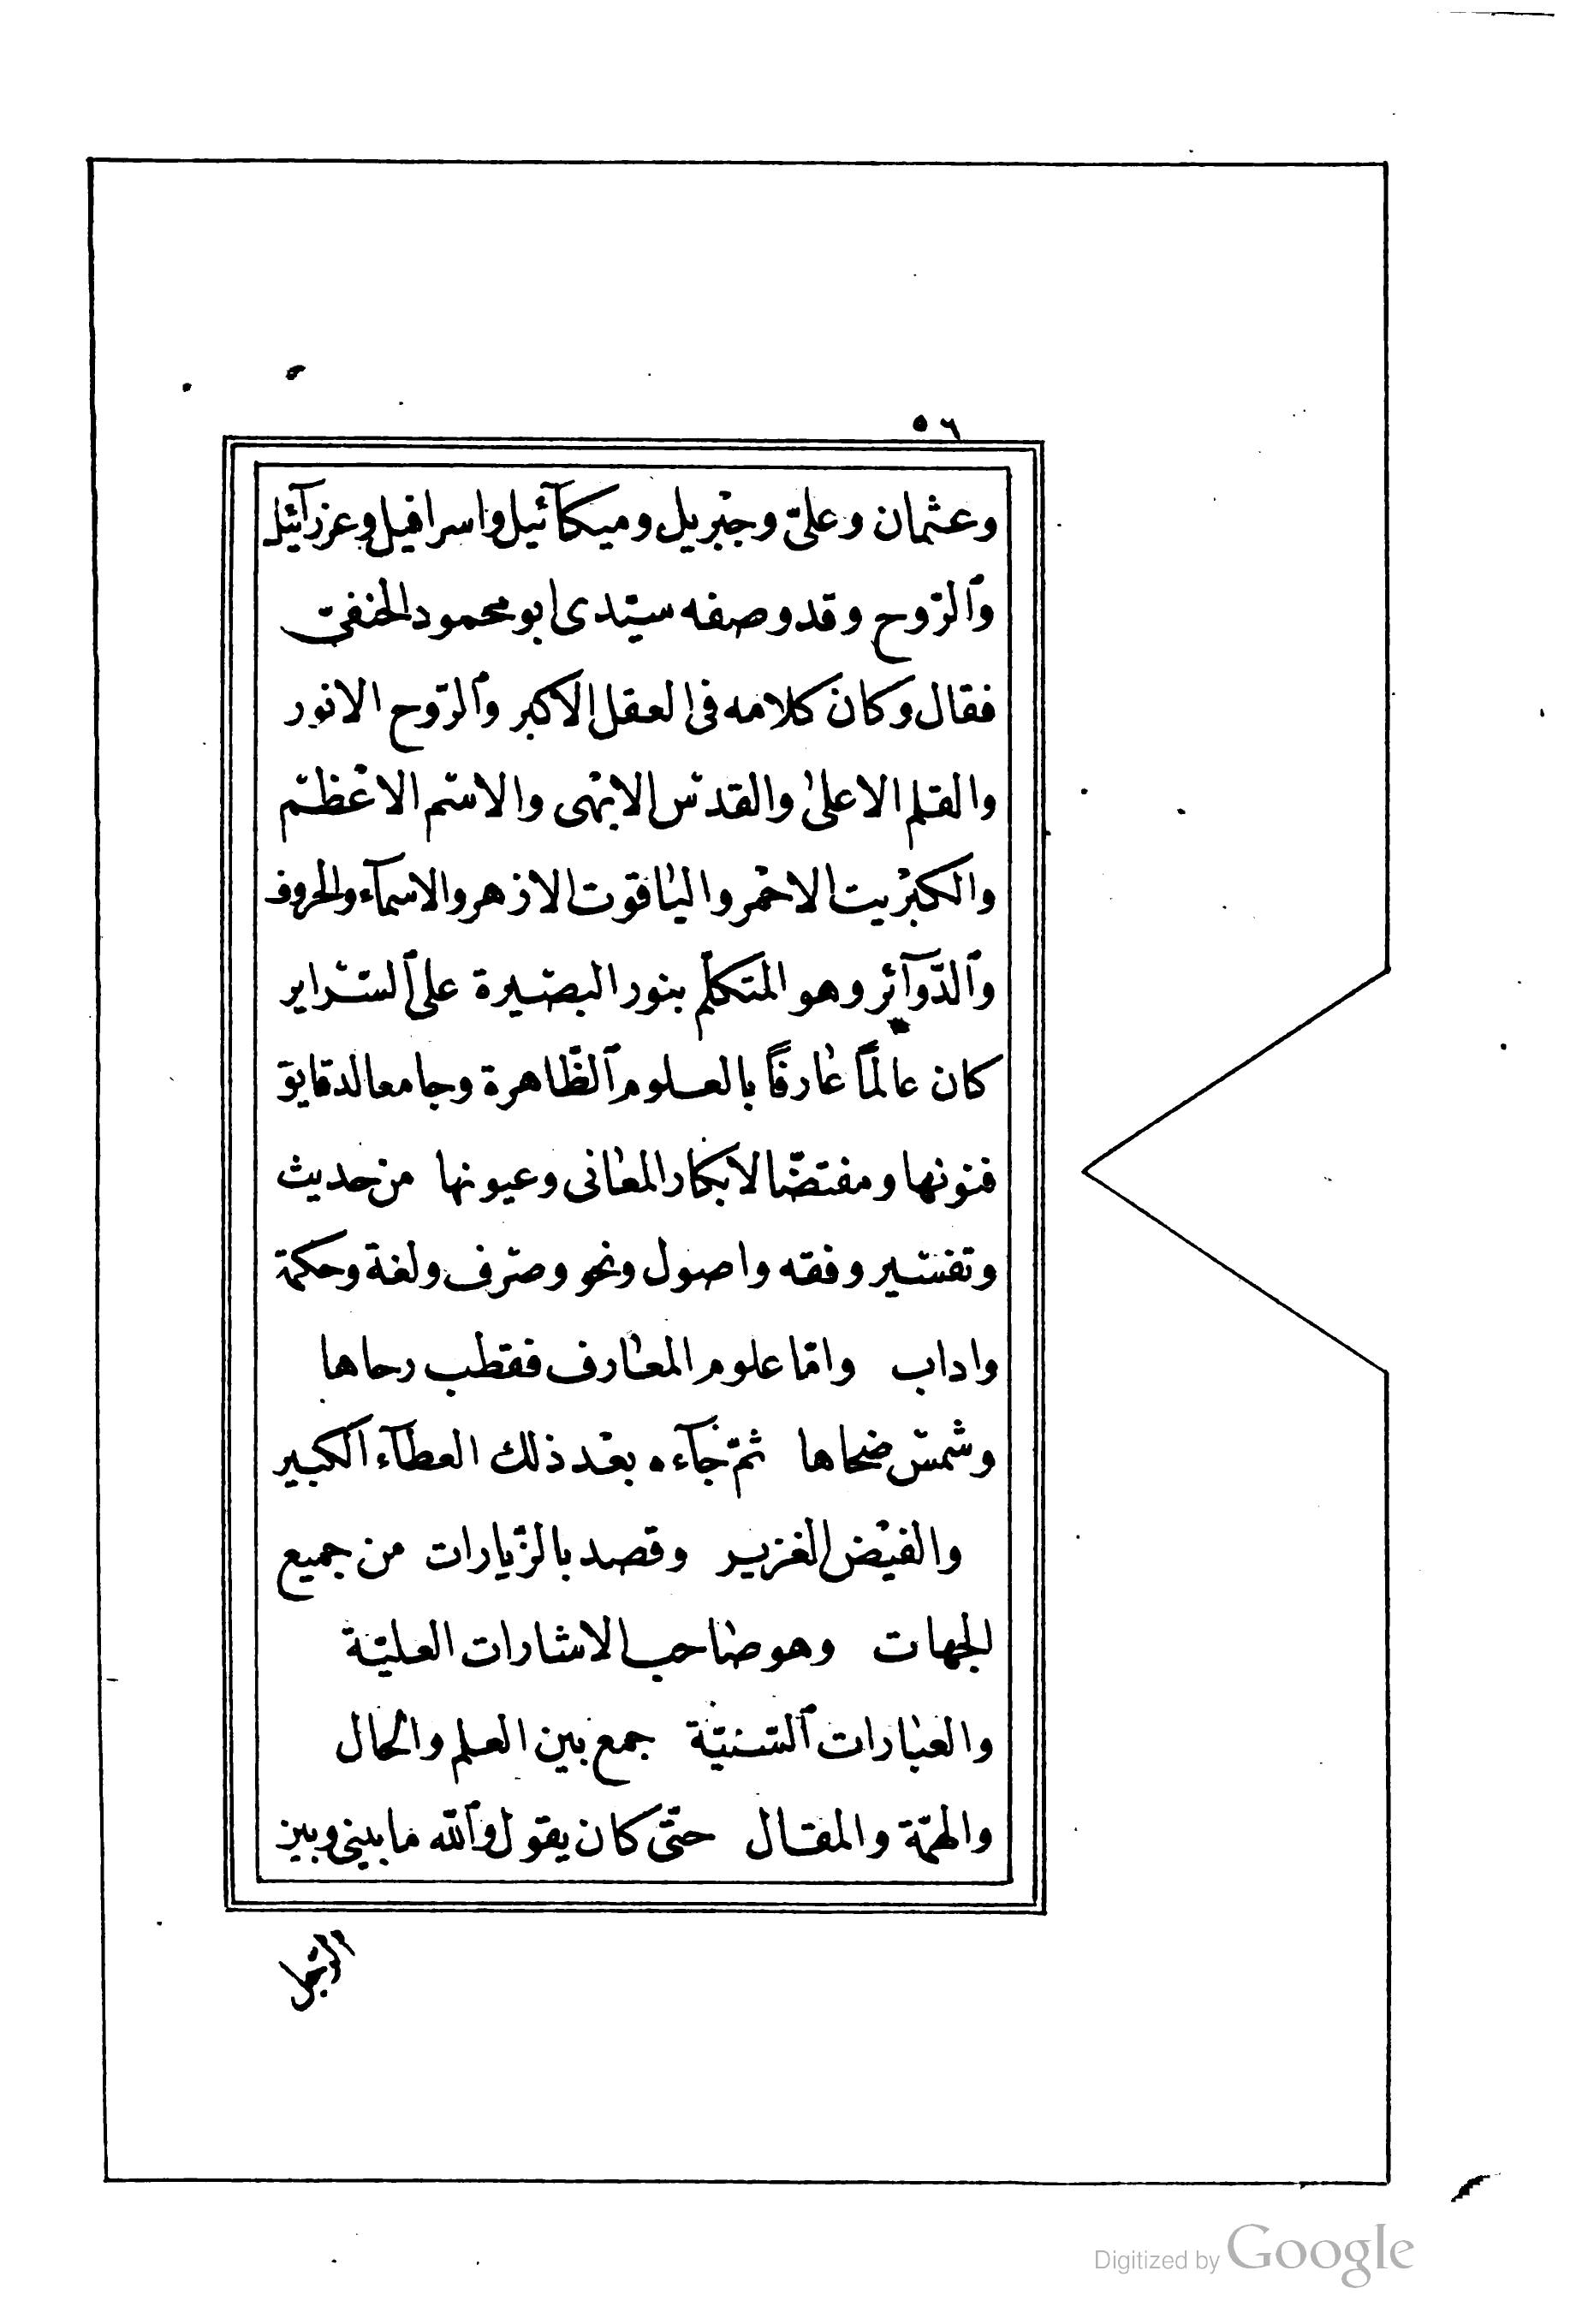 ٥٦
وعثمان وعلىّ وجبْريل وميكآئيل واسرافيل وعزرآئيل
وٱلرّوح وقد وصفه سيّدى ابو محمود الحنفىّ
فقال وكان كلامه فى العقل الاكبر وٱلرّوح الانور
والقلم الاعلىٰ والقدْس الابْهى والاسْم الاعْظم
والكبْريت الاحْمر واليٰاقوت الازهر والاسمآء والحروف
وٱلدّوآئر وهو المتكلّم بنور البصيرة على ٱلسّراير
كان عالمًا عٰارفًا بالعلوم ٱلظّاهرة وجامعا لدقايق
فنونها ومفتضّا لابكار المعٰانى وعيونها من حديث
وتفسير وفقه واصول ونحو وصرْف ولغة وحكمة
واداب وامّا علوم المعٰارف فقطب رحاها
وشمْس ضحاها ثمّ جآءه بعْد ذلك العطآء الكبير
والفيْض الغزير وقصد بالزّيارات من جميع
الجهات وهو صٰاحب الاشارات العليّة
والعبٰارات ٱلسّنيّة جمع بين العلم والحال
والهمّة والمقال حتّى كان يقول وٱللّه ما بينى وبين
الرّجل
Digitized by Google